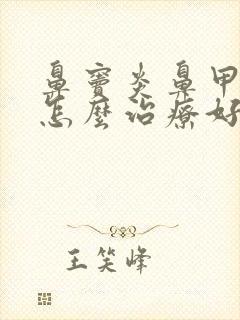 鼻竇炎鼻甲
怎麼治療好
王笑峰